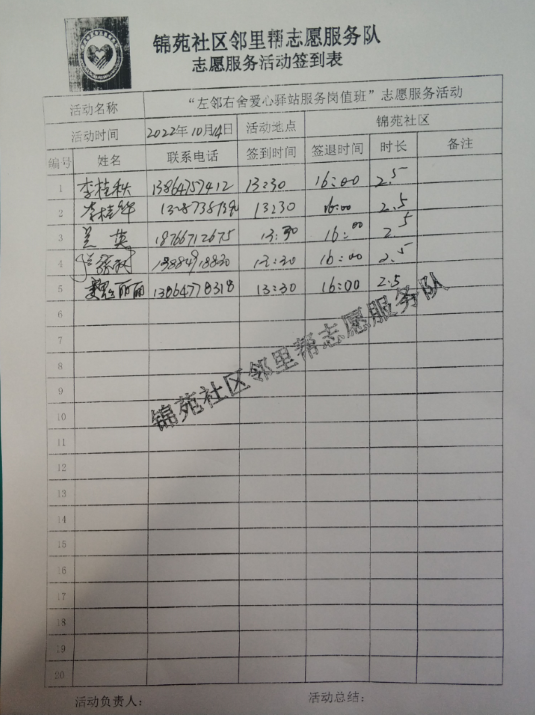 锦苑社区邻里帮志愿服务队
志愿服务活动签到表
活动名称 “左邻右舍爱心驿站服务岗值班”志愿服务活动
活动时间 2022年10月14日 活动地点 锦苑社区
编号 姓名 联系电话 签到时间 签退时间 时长 备注
1 李桂秋 13864757412 13:30 16:00 2.5
2 李桂华 13:30 16:00 2.5
3 吴英 18766712675 13:30 16:00 2.5
4 13884918830 13:30 16:00 2.5
5 魏丽丽 13864778318 13:30 16:00 2.5
6
7
8
9
10
11
12
13
14
15
16
17
18
19
20
锦苑社区邻里帮志愿服务队
活动负责人: 活动总结: